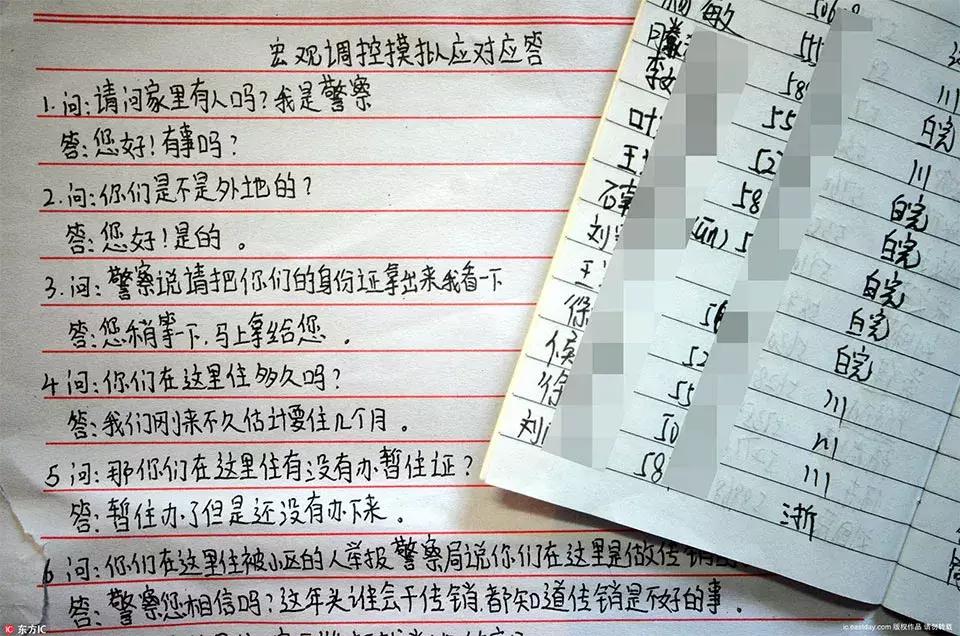 宏观调控摸拟应对应答
1.问:请问家里有人吗?我是警察
答:您好!有事吗?
2.问:你们是不是外地的?
答:您好!是的。
3.问:警察说请把你们的身份证拿出来我看一下
答:您稍等一下,马上拿给您。
4问:你们在这里住多久吗?
答:我们刚来不久估计要住几个月。
5问:那你们在这里住有没有办暂住证?
答:暂住办了但是还没有办下来。
6问:你们在这里住被小区的人举报警察局说你们在这里是做传销
答:警察您相信吗?这年头谁会干传销.都知道传销是不好的事.
敏
555
川
李
58
皖
叶
55
川
王
52
皖
石
58
皖
刘
皖
王
皖
徐
皖
侯
52
川
徐
55
川
刘
50
川
58
浙
东方IC
ic.eastday.com 版权作品 请勿转载